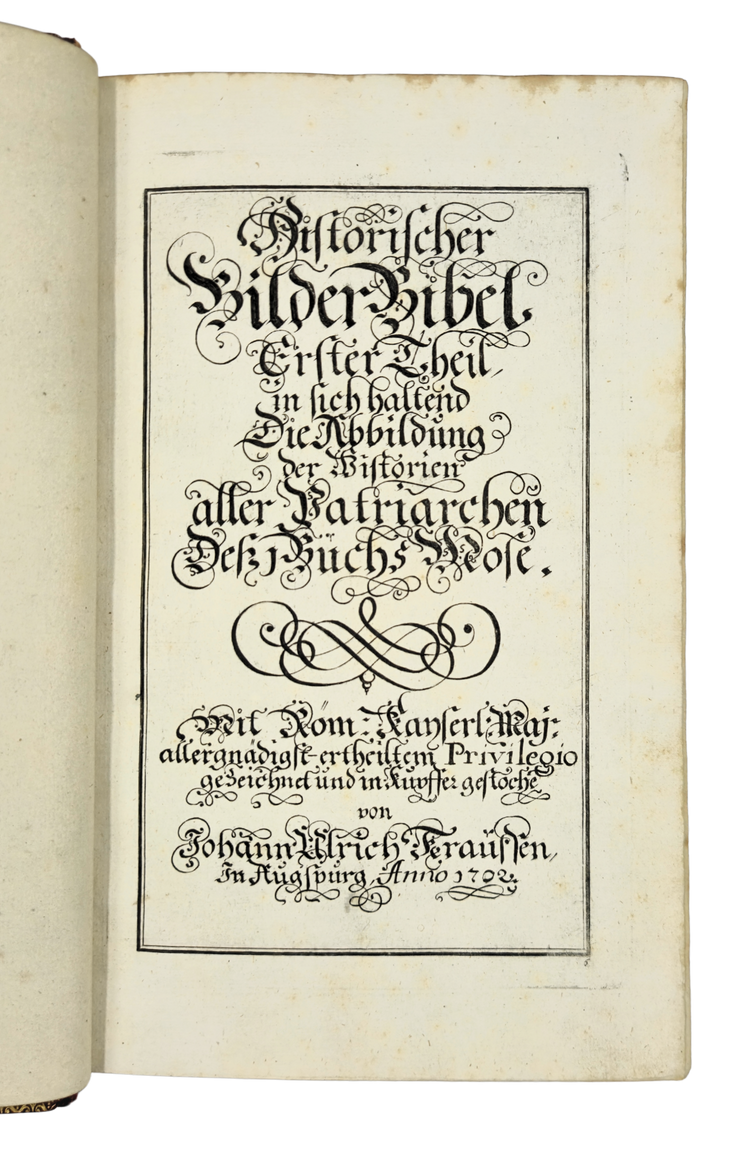 Historischer
Bilder Bibel
Erster Theil,
in sich haltend
Die Abbildung
der Historien
aller Patriarchen
Deß 1 Buchs Mose.
Mit Röm: Kayserl: Maj:
allergnädigst-ertheiltem Privilegio
gezeichnet und in Kupffer gestochē
von
Johann Ulrich Kraussen,
In Augspurg, Anno 1702.